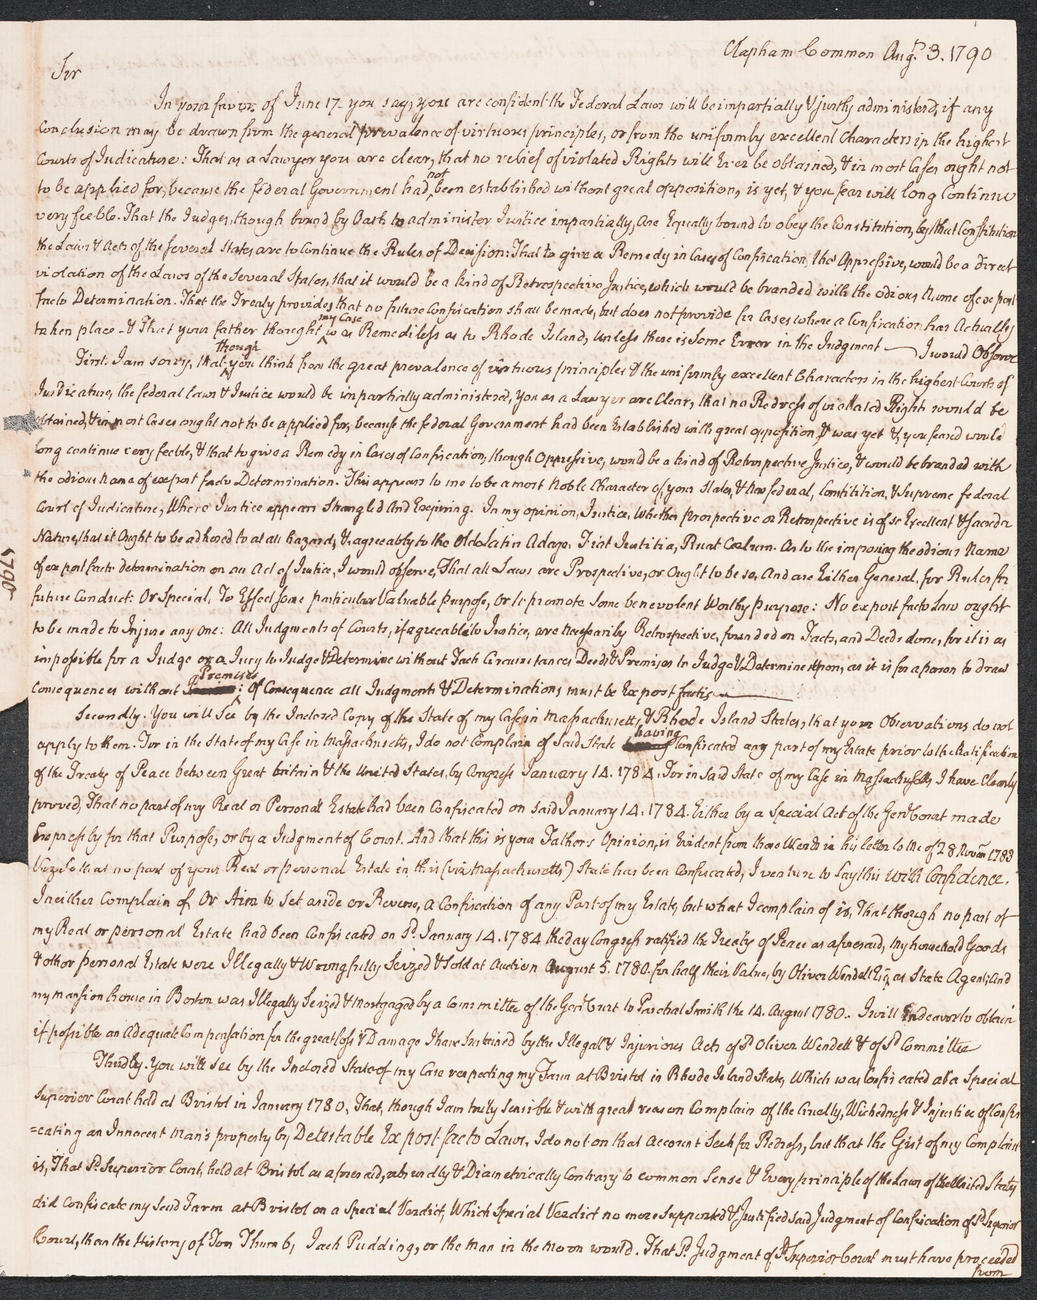 Clapham Common Augt. 3. 1790
Sir
In your favor of June 17. you say, you are confident the Federal Laws will be impartially & justly administerd, if any
Conclusion may be drawn from the general prevalence of virtuous principles, or from the uniformly excellent Characters in the highest
Courts of Judicature: That as a Lawyer you are clear, that no relief of violated Rights will Ever be obtained, & in most Cases ought not
not
to be applied for, because the federal Government had been established without great opposition, is yet, & you fear will long Continue
very feeble. That the Judges, though bound by Oath to administer Justice impartially, are Equally bound to obey the Constitution, by that Constitution
the Laws & Acts of the several States, are to Continue the Rules of Decision: That to give a Remedy in Cases of Confiscation, tho' Oppressive, would be a direct
violation of the Laws of the Several States, that it would be a kind of Retrospective Justice, which would be branded with the odious Name of ex post
facto Determination. That the Treaty provides that no future Confiscation shall be made, but does not provide for Cases where a Confiscation has Actually
my Case
taken place - & That your father thought was Remediless as to Rhode Island, unless there is Some Error in the Judgment — I would Observe
though
First. I am sorry, that you think from the great prevalence of virtuous principles & the uniformly excellent Characters in the highest Courts of
Judicature, the federal Laws & Justice would be impartially administered, you as a Lawyer are Clear, that no Redress of violated Rights would be
obtained, & in most Cases ought not to be applied for, because the federal Government had been Established with great opposition, was yet & you feared would
long continue very feeble, & that to give a Remedy in Cases of Confiscation, though Oppressive, would be a kind of Retrospective Justice, & would be branded with
the odious name of ex post facto Determination. This appears to me to be a most Noble Character of your States, & New federal, Constitution, & Supreme federal
Court of Judicature, Where Justice appears Strangled And Expiring. In my opinion, Justice, whether prospective or Retrospective is of so Excellent & sacred a
Nature, that it Ought to be adhered to at all hazards, & agreeably to the Old Latin Adage, Fiat Justitia, Ruat Cœlum. As to the imposing the odious Name
of ex post facto determination on an Act of Justice, I would observe, That all Laws are Prospective, or Ought to be so, And are Either General, for Rules for
future Conduct: Or Special, To Effect some particular Valuable purpose, or to promote Some benevolent Worthy purpose: No ex post facto Law ought
to be made to Injure any one: All Judgments of Courts, if agreeable to Justice, are necessarily Retrospective, founded on Facts, and Deeds done, for it is as
impossible for a Judge or a Jury to Judge & Determine without Such Circumstances Deeds & Premises to Judge & Determine upon, as it is for a person to draw
Premises
Consequences without : Of Consequence all Judgments & Determinations must be Ex post factis
Secondly. You will See by the Inclosed Copy of the State of my Case in Massachusetts, & Rhode Island States, that your Observations do not
having
apply to them. For in the State of my Case in Massachusetts, I do not Complain of Said State Confiscated any part of my Estate prior to the Ratification
of the Treaty of Peace between Great britain & the United States, by Congress January 14. 1784. For in said State of my Case in Massachusetts, I have Clearly
proved, That no part of my Real or Personal Estate had been Confiscated on said January 14. 1784. Either by a Special Act of the Genl. Court made
Expressly for that Purpose, or by a Judgment of Court. And that this is your Father's Opinion, is Evident from these Words in his letter to Me of 28 Novem 1788
Vizt. So that no part of your Real or personal Estate in this (viz Massachusetts) State has been Confiscated, I venture to Say this with Confidence.
I neither Complain of, Or Aim to set aside or Reverse, a Confiscation of any Part of my Estate, but what I complain of is, That though no part of
my Real or personal Estate had been Confiscated on Sd. January 14. 1784 the day Congress ratified the Treaty of Peace as aforesaid, My household Goods
& other personal Estate were Illegally & Wrongfully Seized & Sold at Auction August 5. 1780. for half their Value, by Oliver Wendell Esqr. as State Agent; And
my mansion house in Boston was Illegally Seized & Mortgaged by a Committee of the Genl. Court to Paschal Smith the 14. August 1780. I will Endeavor to obtain
if possible an Adequate Compensation for the great loss & Damage I have Sustained by the Illegal & Injurious Acts of Sd. Oliver Wendell & of Sd. Committee
Thirdly. You will See by the Inclosed State of my Case respecting my Farm at Bristol in Rhode Island State, Which was Confiscated at a Special
Superior Court held at Bristol in January 1780, That, though I am truly sensible & with great reason Complain of the Cruelty, Wickedness & Injustice of Confis
=cating an Innocent Man's property by Detestable Ex post facto Laws, I do not on that Account Seek for Redress, but that the Gist of my Complaint
is, That Sd. Superior Court, held at Bristol as aforesaid, absurdly & Diametrically Contrary to common Sense & Every principle of the Laws of the United States
did Confiscate my Said Farm at Bristol on a Special Verdict, Which Special Verdict no more Supported & Justified said Judgment of Confiscation of Sd. Superior
Court, than the History of Tom Thumb, Jack Pudding, or the Man in the Moon would. That Sd. Judgment of Sd. Superior Court must have proceeded
from
1790